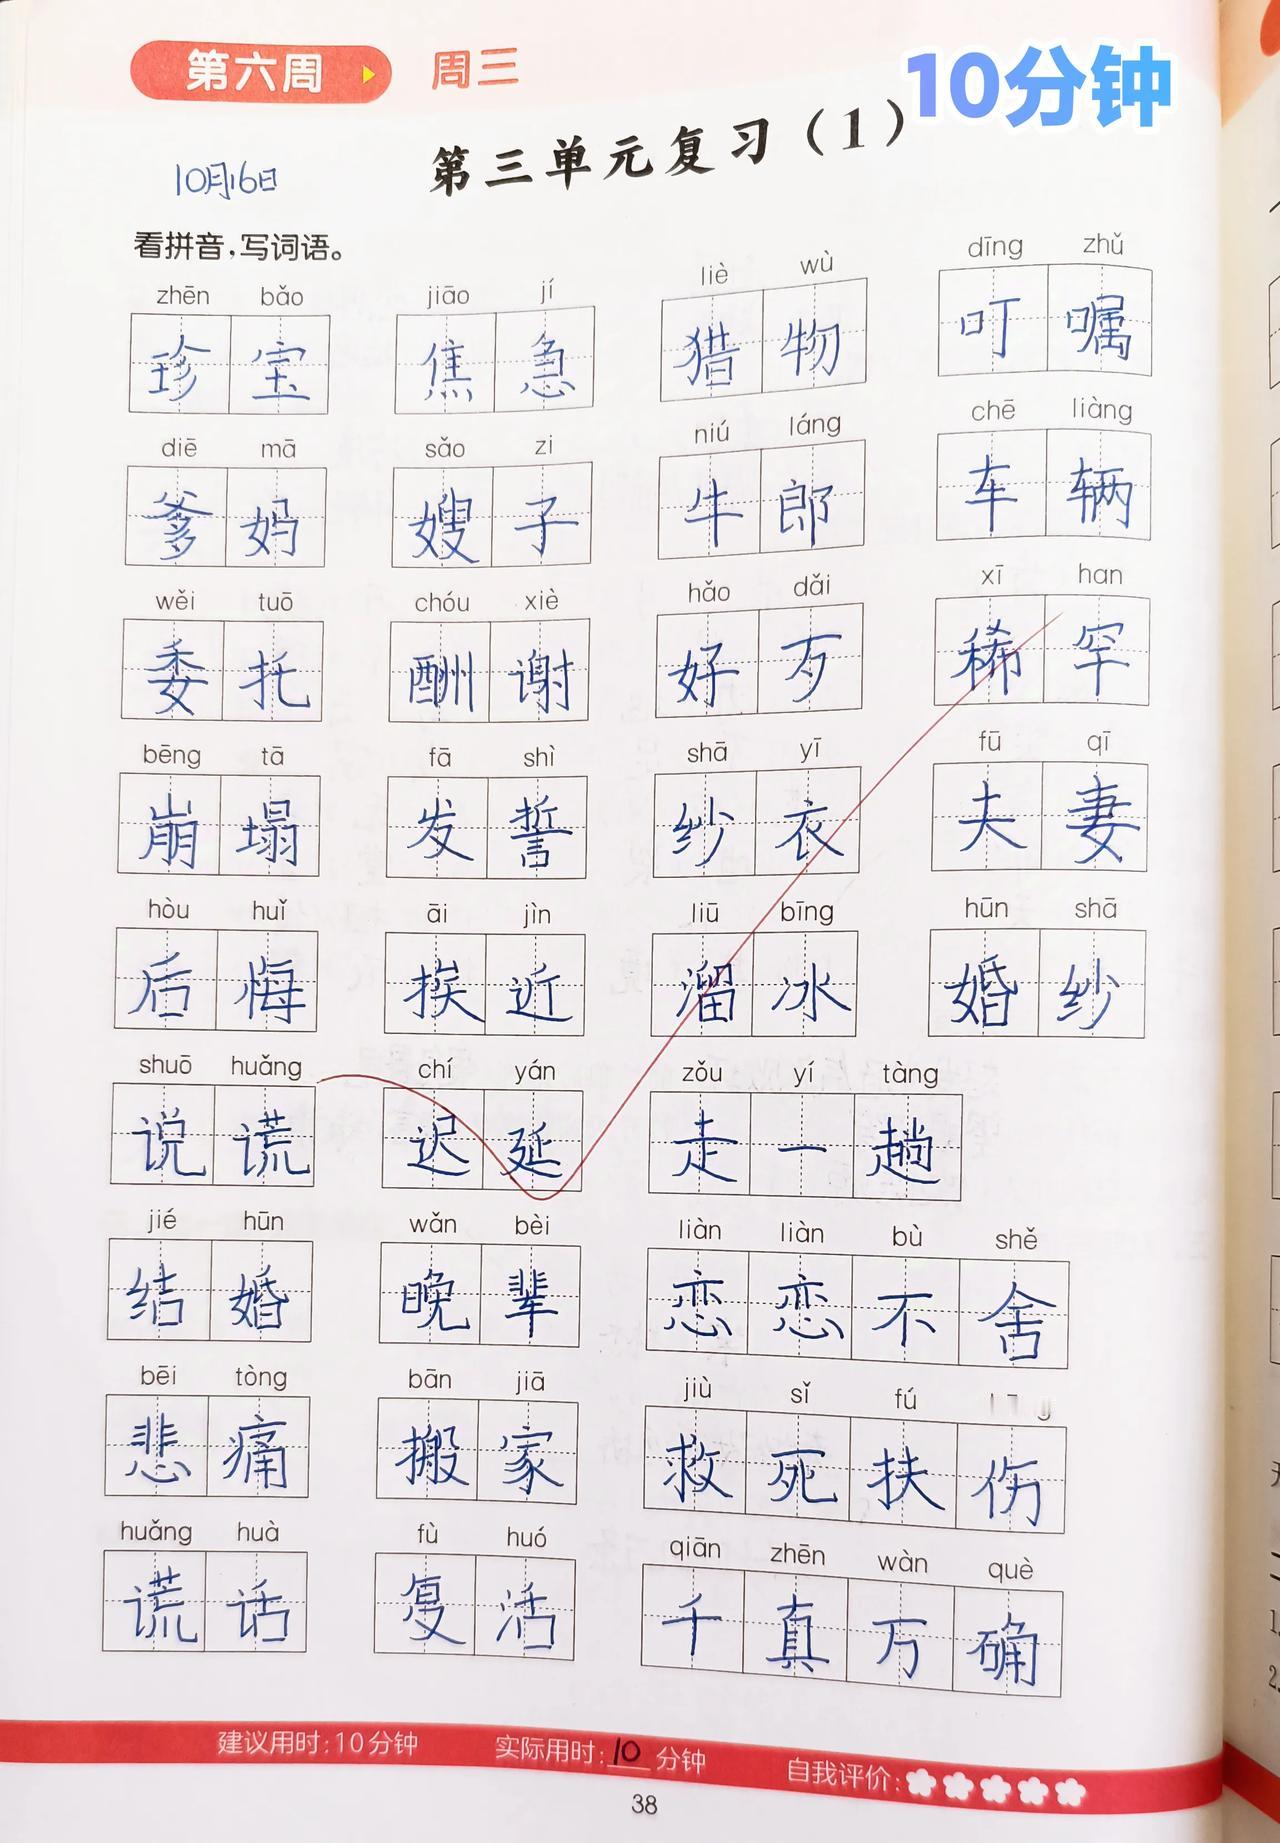 第六周 周三 10分钟
第三单元复习（1）
10月16日
看拼音，写词语。
zhēn bǎo jiāo jí liè wù dīng zhǔ
珍宝 焦急 猎物 叮嘱
diē mā sǎo zi niú láng chē liàng
爹妈 嫂子 牛郎 车辆
wěi tuō chóu xiè hǎo dǎi xī han
委托 酬谢 好歹 稀罕
bēng tā fā shì shā yī fū qī
崩塌 发誓 纱衣 夫妻
hòu huǐ āi jìn liū bīng hūn shā
后悔 挨近 溜冰 婚纱
shuō huǎng chí yán zǒu yí tàng
说谎 迟延 走一趟
jié hūn wǎn bèi liàn liàn bù shě
结婚 晚辈 恋恋不舍
bēi tòng bān jiā jiù sǐ fú
悲痛 搬家 救死扶伤
huǎng huà fù huó qiān zhēn wàn què
谎话 复活 千真万确
建议用时：10分钟 实际用时：10分钟 自我评价：
38
1.
2.